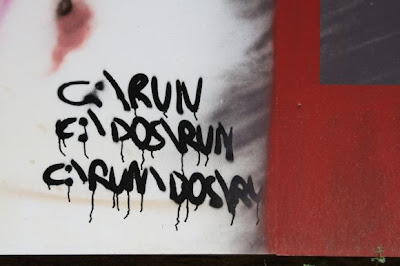 C:\RUN
C:\DOS\RUN
C:\RUN\DOS\RU